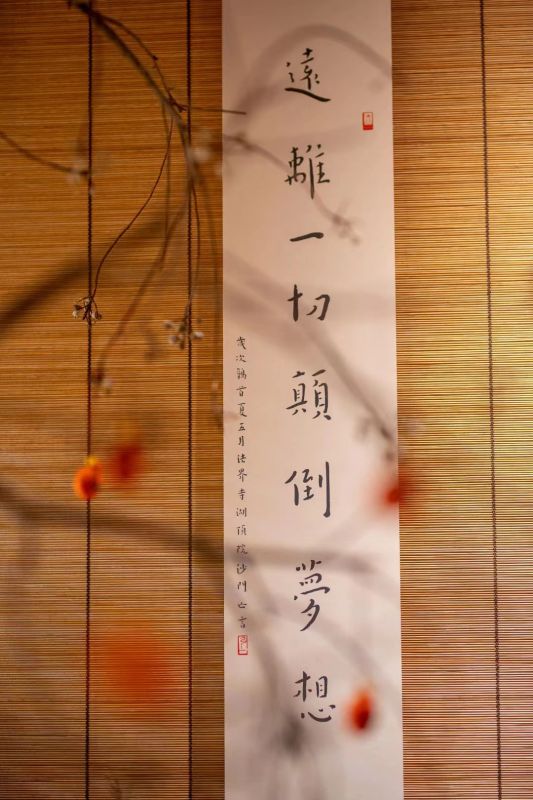 遠離一切顛倒夢想
歲次鶉首夏五月法界寺湖頂院沙門亡言